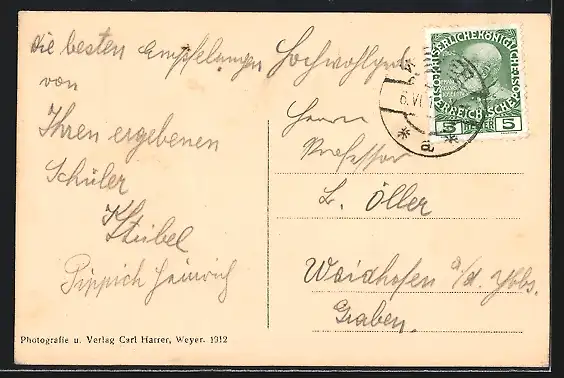 die besten Empfehlungen
von
Ihren ergebenen
Schüler
K. Stübel
Pippich Heinrich
Photografie u. Verlag Carl Harrer, Weyer. 1912
Hochwohlgeb.
Herrn
Professor
L. Öller
Waidhofen a/d. Ybbs.
Graben.
6. VI
* a *
5 HELLER 5